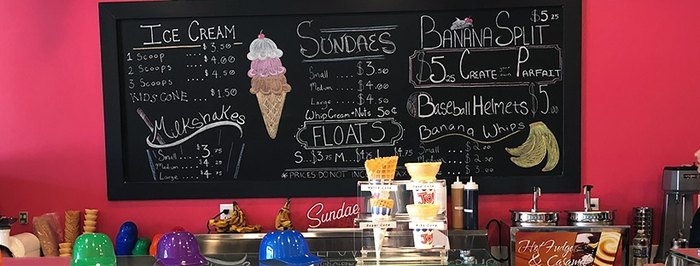 ICE CREAM
1 SCOOP ... $3.50
2 SCOOPS ... $4.00
3 SCOOPS ... $4.50
KIDS CONE ... $1.50
Milkshakes
Small ... 3.75
Medium ... 4.25
Large ... 4.75
SUNDAES
Small .... $3.50
Medium .... $4.00
Large .... $4.50
WHIP CREAM + NUTS 50¢
FLOATS
S...$3.75 M...$4
*PRICES DO NOT
BANANA SPLIT $5.25
$5.25 CREATE PARFAIT
BASEBALL HELMETS $5
BANANA WHIPS
Sundae
Hot Fudge
& Caramel